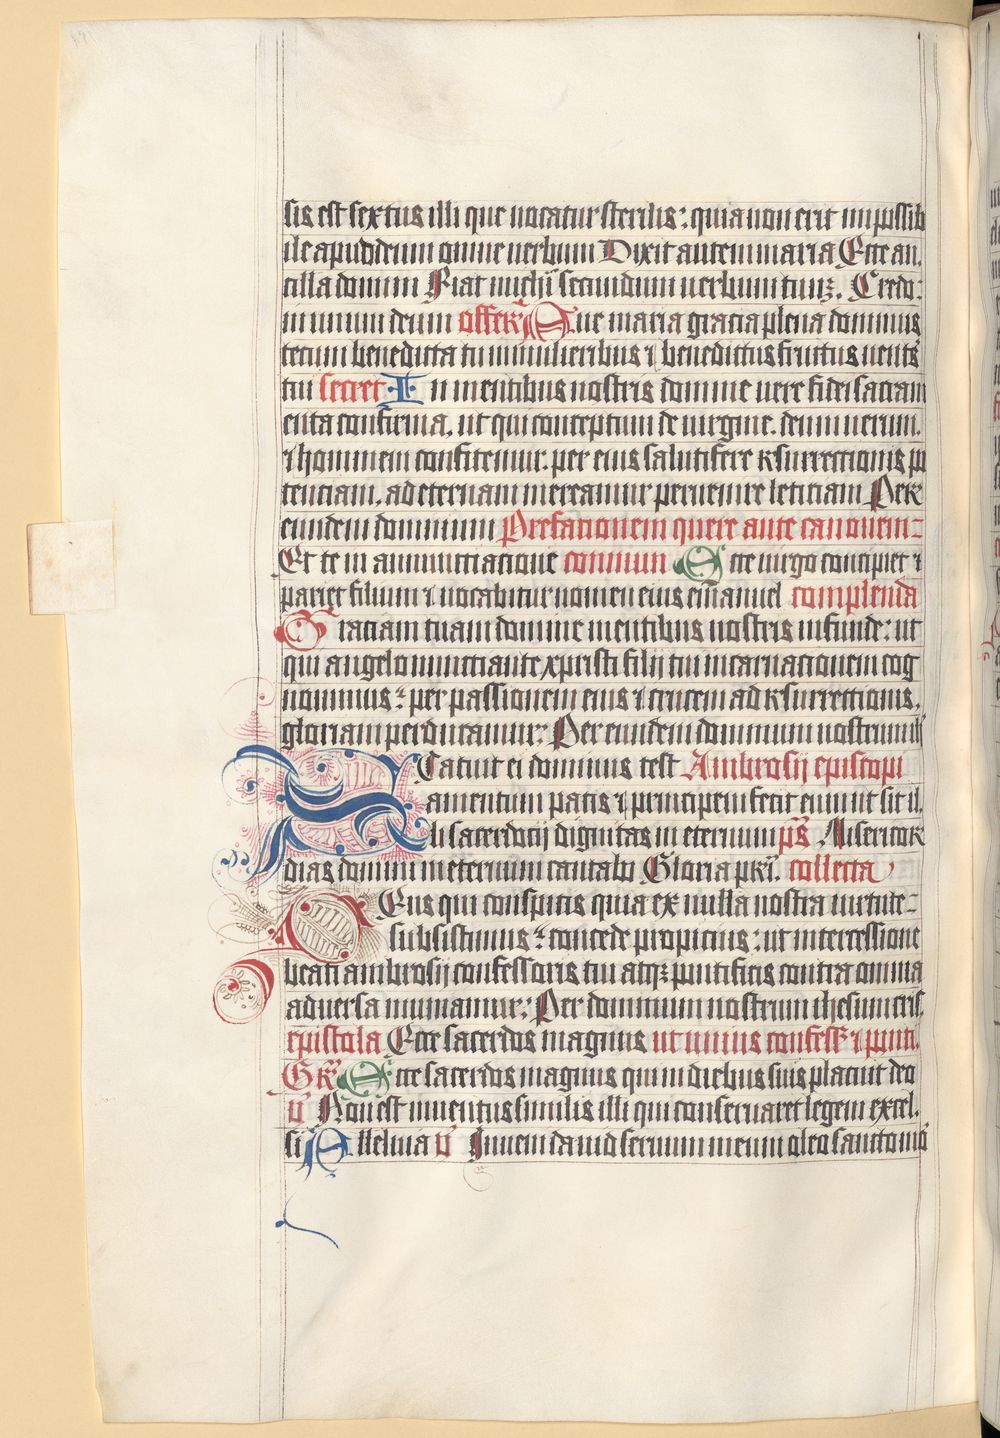 sis est sextus illi que vocatur sterilis: quia non erit impossib
ile apud deum omne verbum Dixit autem maria Ecce an,
cilla domini Fiat michi secundum verbum tuuz. Credo:
in unum deum offerꝫ Ave maria gracia plena dominus
tecum benedicta tu in mulieribus ⁊ benedictus fructus vents
tui secret In mentibus nostris domine vere fidei sacram
enta confirma, ut qui conceptum de virgine, deum verum,
⁊ hominem confitemur: per eius salutifere resurrectionis po
tenciam, ad eternam mereamur pervenire leticiam Per
eundem dominum Prefationem quere ante canonem-
Et te in annuncciatione commun Ecce virgo concipiet ⁊
pariet filium ⁊ vocabitur nomen eius emanuel complenda
Graciam tuam domine mentibus nostris infunde: ut
qui angelo nuncciante xpristi filij tui incarnacionem cog
novimus: per passionem eius ⁊ crucem ad resurrectionis,
gloriam perducamur: Per eundem dominum nostrum ih
Statuit ei dominus test Ambrosij episcopi
amentum pacis ⁊ principem fecit eum ut sit il,
li sacerdocij dignitas in eternum ps Misericor
dias domini in eternum cantabo Gloria pri. collecta
Deus qui conspicis quia ex nulla nostra virtute-
subsistimus: concede propicius: ut intercessione
beati ambrosij confessoris tui atqꝫ pontificis contra omnia
adversa muniamur: Per dominum nostrum ihesum cris,
epistola Ecce sacerdos magnus ut unius confess ⁊ ponti,
Gr Ecce sacerdos magnus qui in diebus suis placuit deo
v Non est inventus similis illi qui conservaret legem excel,
si Alleluia v Inveni david servum meum oleo sancto meo